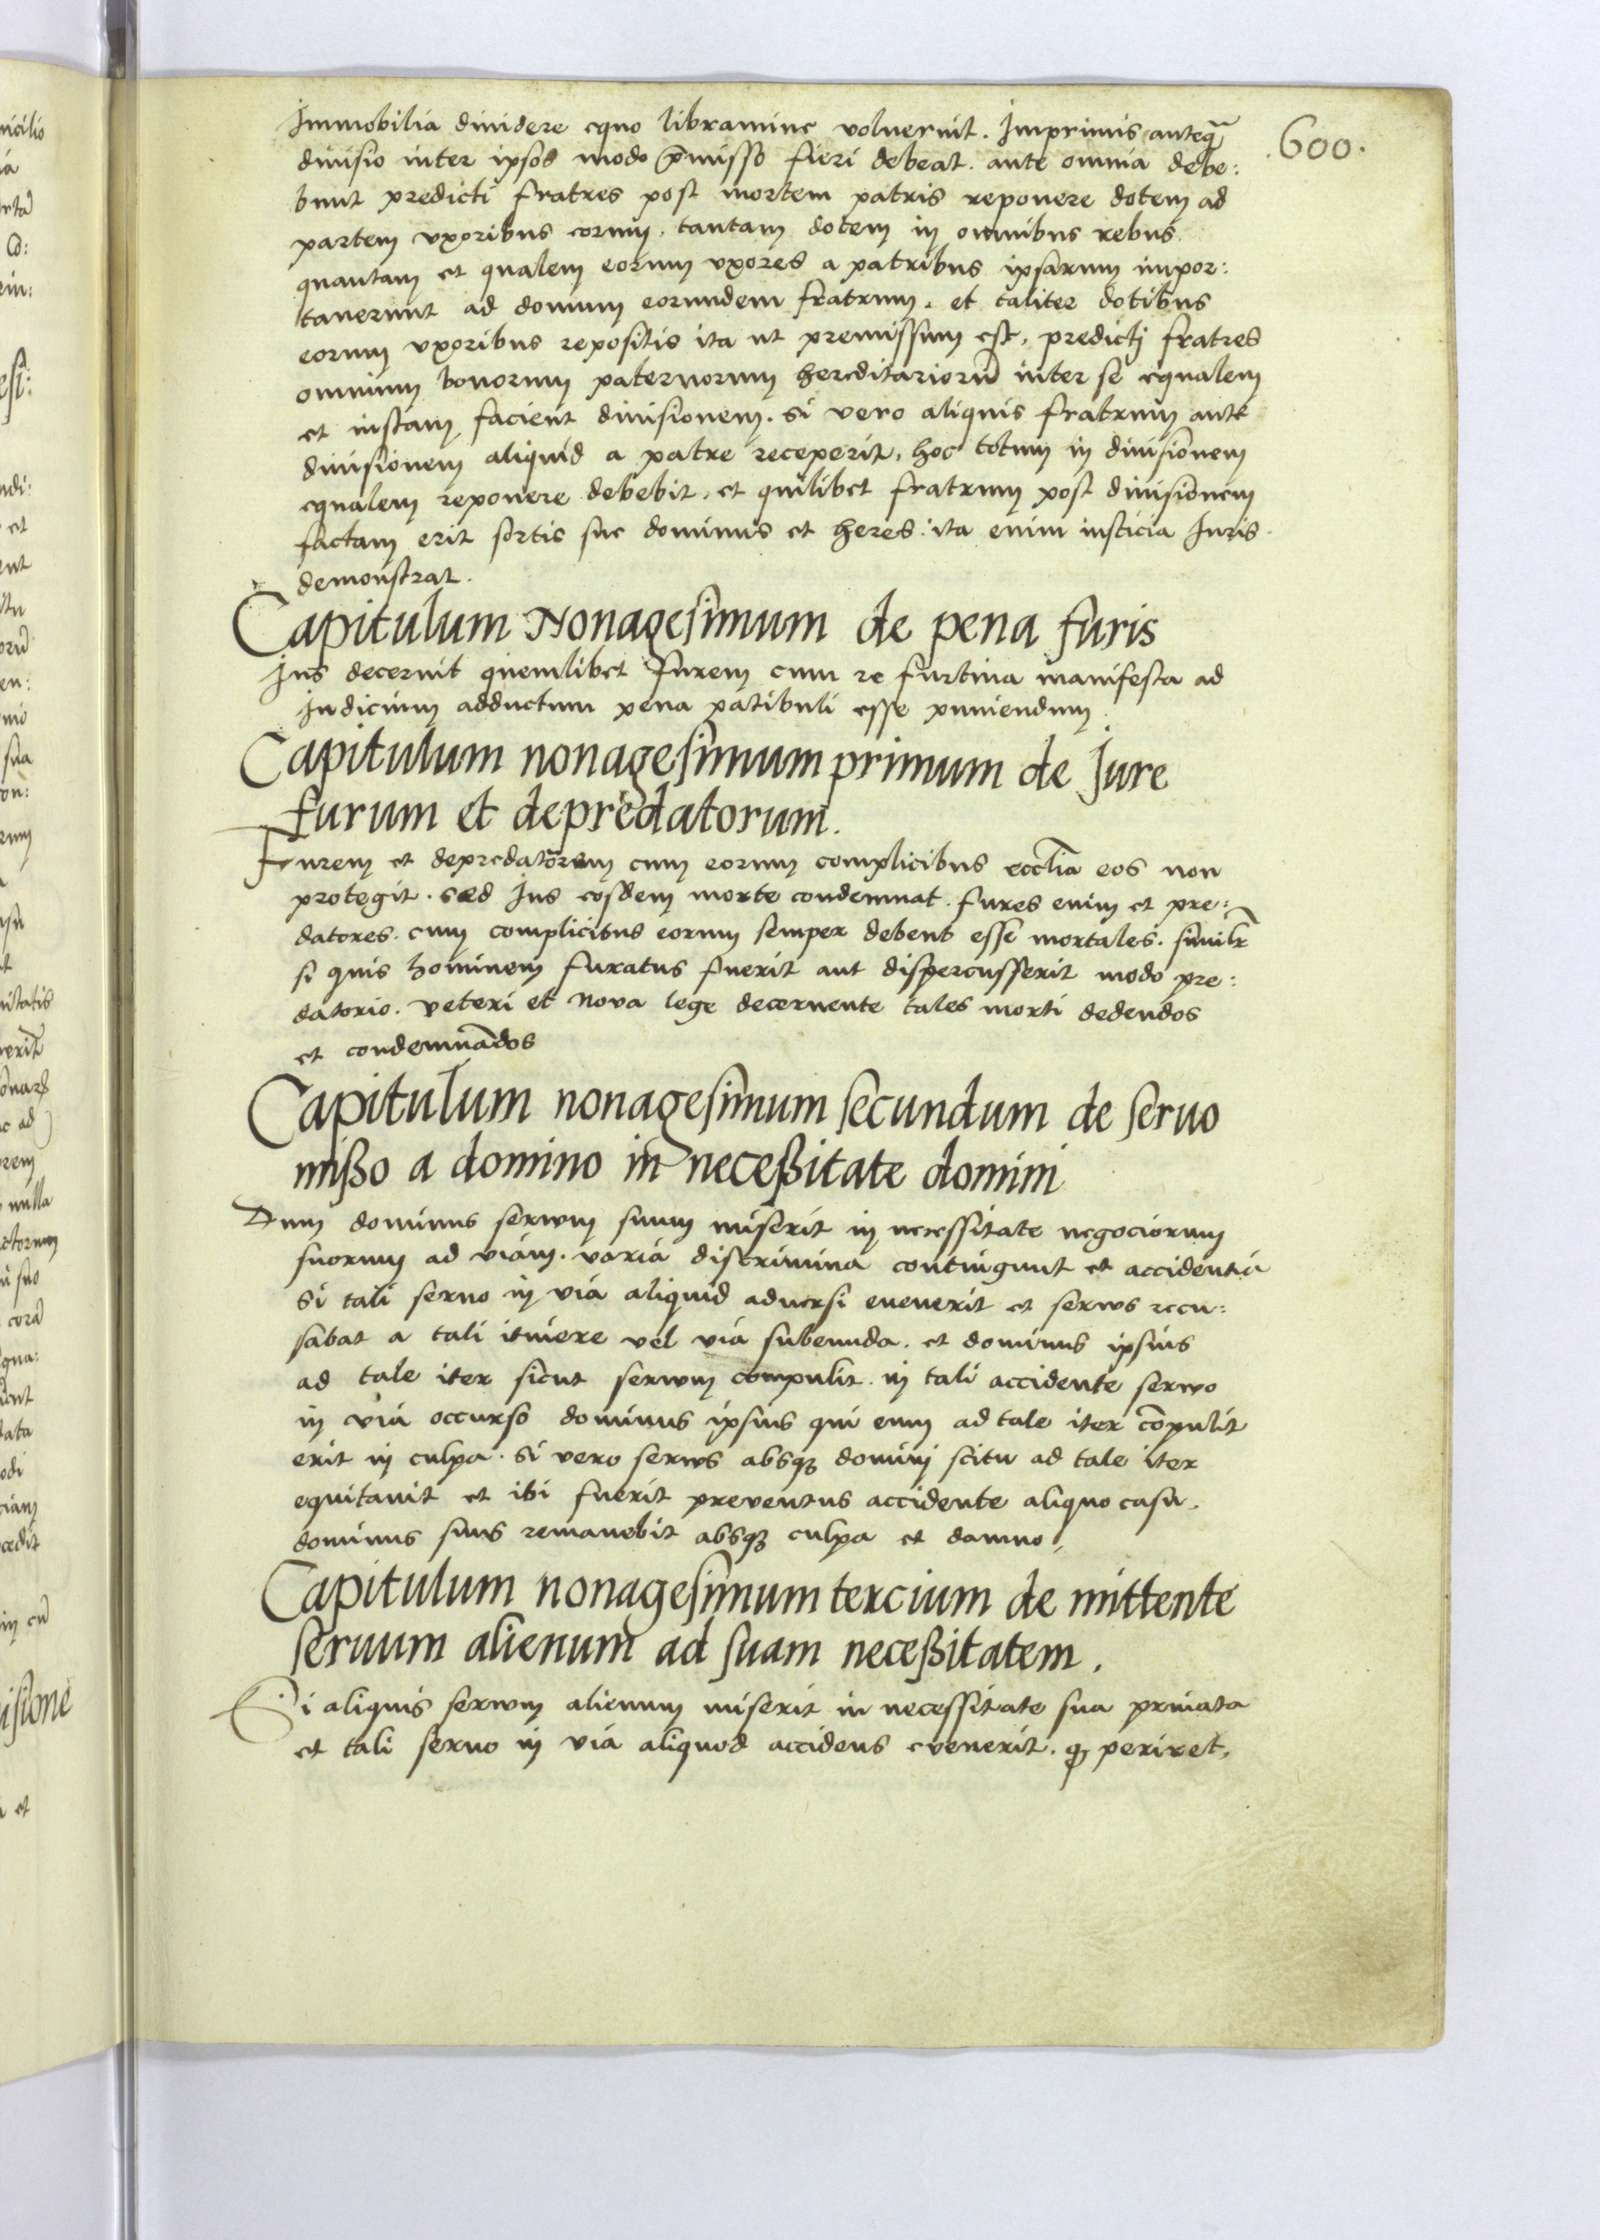 Immobilia diuidere equo libramine voluerint. Imprimis anteq̃
600.
diuisio inter ipsos modo p̃misso fieri debeat. ante omnia debe:
bunt predicti fratres post mortem patris reponere dotem ad
partem vxoribus eorum. tantam dotem in omnibus rebus
quantam et qualem eorum vxores a patribus ipsarum impor:
tauerunt ad domum eorundem fratrum. et taliter dotibus
eorum vxoribus repositis ita ut premissum est, predicti fratres
omnium bonorum paternorum hereditariorũ inter se equalem
et iustam facient diuisionem. si vero aliquis fratrum ante
diuisionem aliquid a patre receperit, hoc totum in diuisionem
equalem reponere debebit, et quilibet fratrum post diuisionem
factam erit sortis sue dominus et heres: ita enim iusticia Iuris
demonstrat.
Capitulum Nonagesimum de pena furis
Ius decernit quemlibet furem cum re furtiua manifesta ad
Iudicium adductum pena patibuli esse puniendum.
Capitulum nonagesimum primum de Jure
furum et depredatorum.
Furem et depredatorem cum eorum complicibus eccl̃ia eos non
protegit. sed Ius eosdem morte condemnat. fures enim et pre:
datores. cum complicibus eorum semper debent esse mortales. similr̃
si quis hominem furatus fuerit aut dispercusserit modo pre:
datorio. veteri et Noua lege decernente tales morti dedendos
et condemnãdos
Capitulum nonagesimum secundum de seruo
mißo a domino in neceßitate domini
Dum dominus serwm suum miserit in necessitate negociorum
suorum ad viam. varia discrimina contingunt et accidentia
Si tali seruo in via aliquid aduersi euenerit et serws recu:
sabat a tali itinere vel via subeunda. et dominus ipsius
ad tale iter sicut serwm compulit. in tali accidente serwo
in via occurso dominus ipsius qui eum ad tale iter cõpulit
erit in culpa. si vero serws absqȝ domini scitu ad tale iter
equitauit et ibi fuerit preuentus accidente aliquo casu.
dominus suus remanebit absqȝ culpa et damno.
Capitulum nonagesimum tercium de mittente
seruum alienum ad suam neceßitatem.
Si aliquis serwm alienum miserit in necessitate sua priuata
et tali seruo in via aliquod accidens euenerit. qȝ periret,